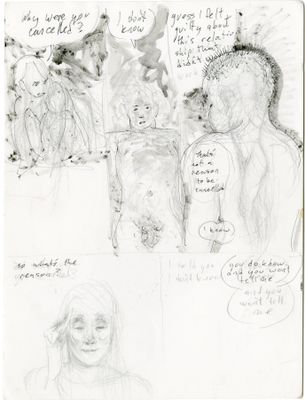 why were you
cancelled?
I don't
know
guess I felt
guilty about
this relation
ship that
didn't
work
that's
not a
reason
to be
I know
so what's the
reason?
I told you
I don't know
you do know
and you won't
tell me
and you
won't tell
me